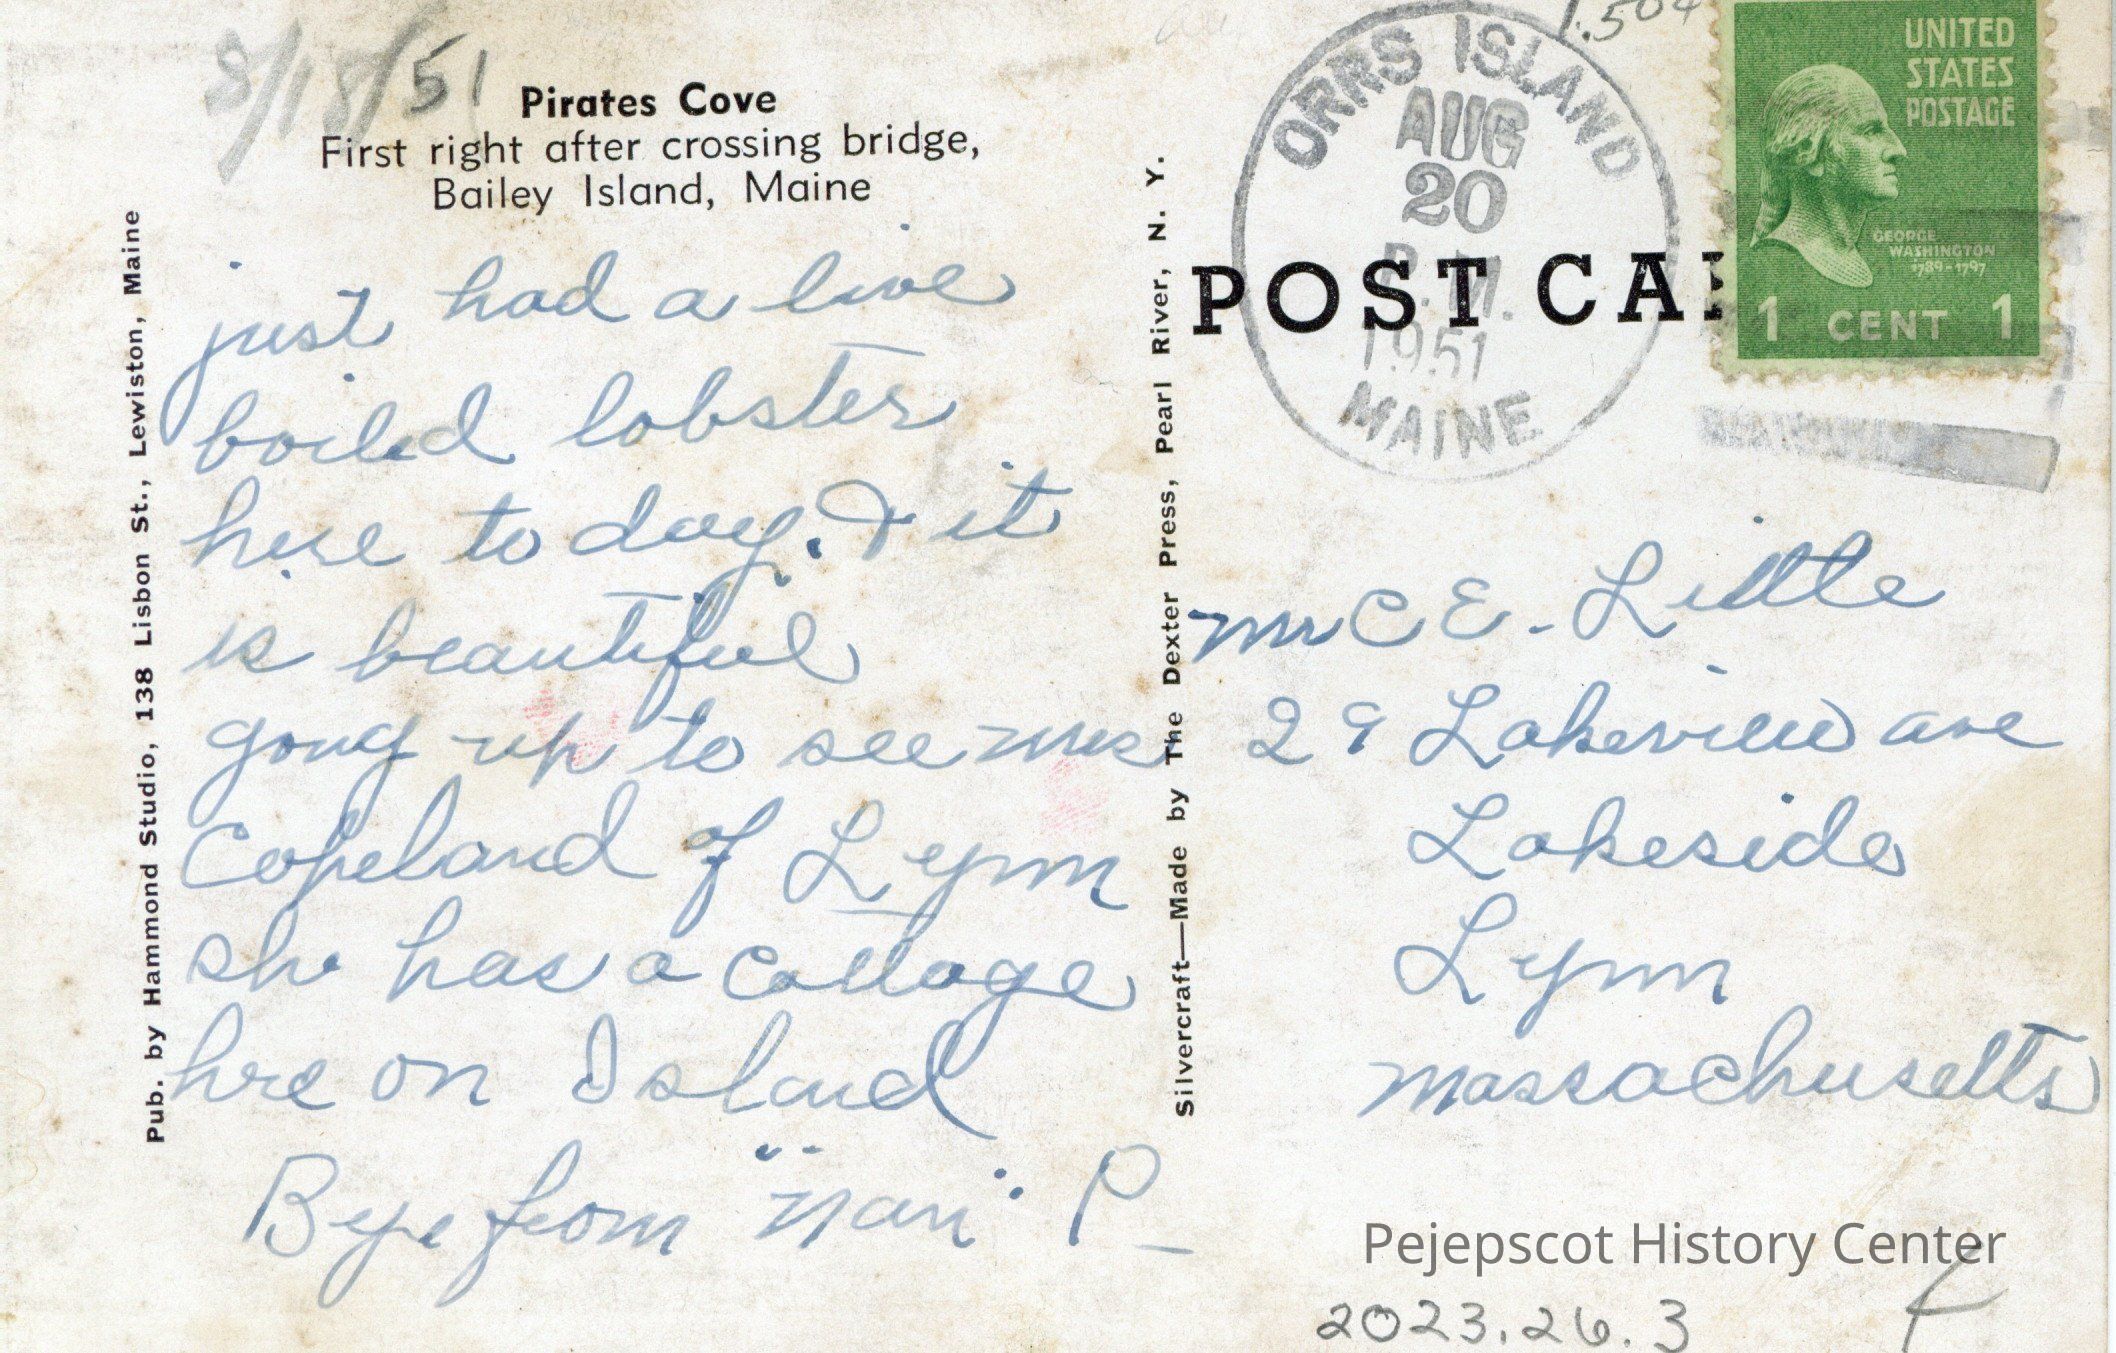 8/18/51
Pirates Cove
First right after crossing bridge,
Bailey Island, Maine
just had a live
boiled lobster
here to day. & it
is beautiful
going up to see mrs
Copeland of Lynn
she has a cottage
hre on Island
Bye from "nan" P_
Pub. by Hammond Studio, 138 Lisbon St., Lewiston, Maine
Silvercraft—Made by The Dexter Press, Pearl River, N. Y.
1.50
ORRS ISLAND
AUG
20
P.M.
1951
MAINE
POST CAR
UNITED
STATES
POSTAGE
GEORGE
WASHINGTON
1789-1797
1 CENT 1
mr C E. Little
29 Lakeview ave
Lakeside
Lynn
massachusetts
Pejepscot History Center
2023.26.3